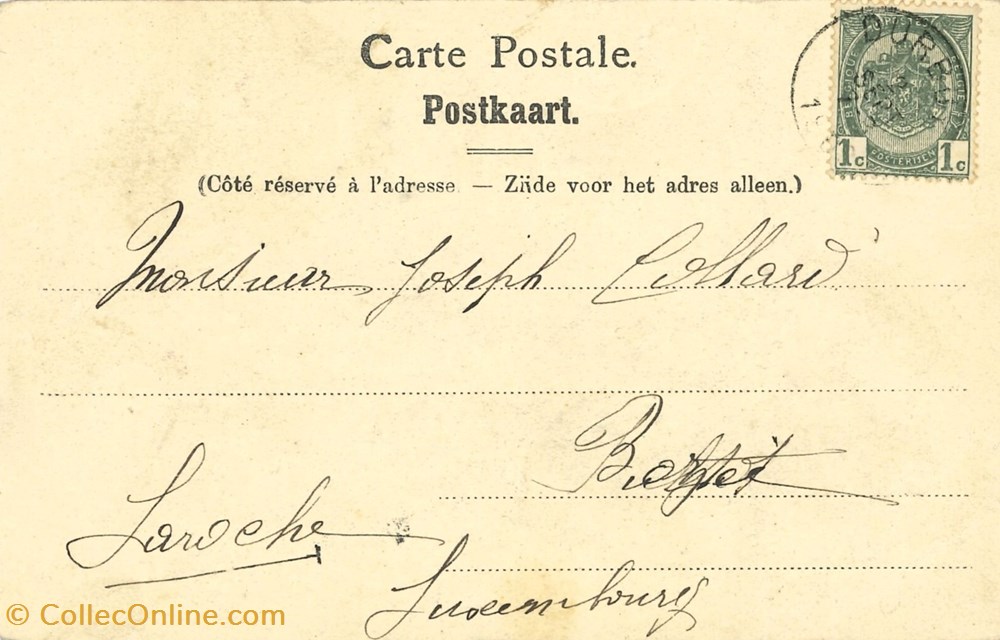 Carte Postale.
Postkaart.
(Côté réservé à l'adresse — Zijde voor het adres alleen.)
DURBUY
POSTES
1c OOSTERIJEN 1c
Monsieur Joseph Collard
Laroche
Luxembourg
© CollecOnline.com